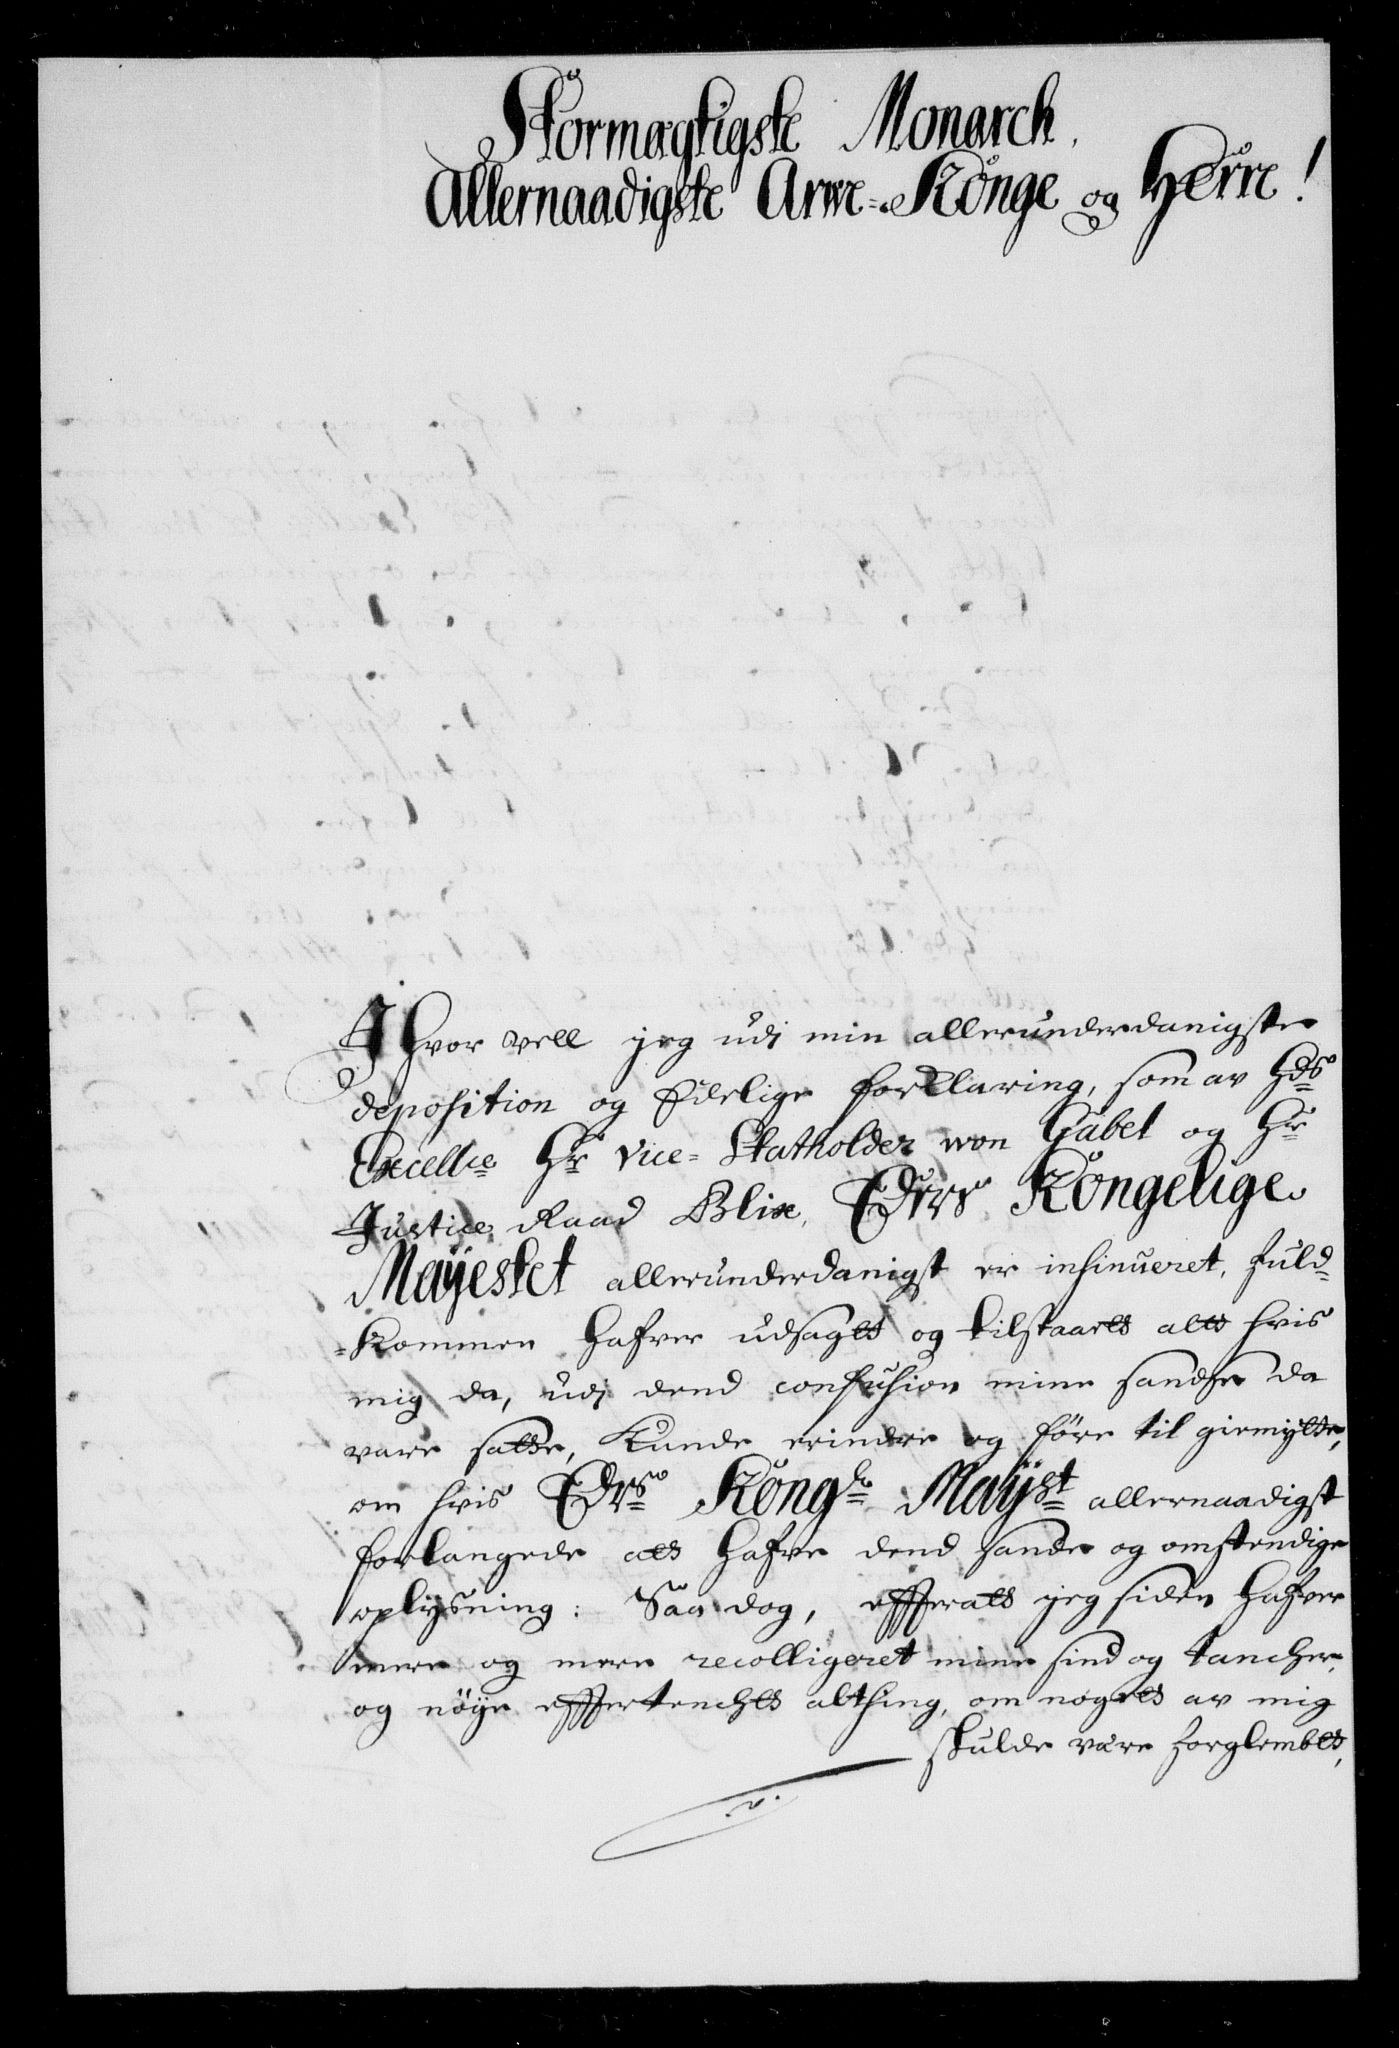 Stormægtigste Monarch,
Allernaadigste Arwe-Konge og Herre!
Jhvor vell jeg udi min allerunderdanigste
deposition og Edelige forklaring, som av Hds
Excellce Hr Vice-Statholder von Gabel og Hr
Justice Raad Blix, Eders Kongelige
Mayestet allerunderdanigst er insinueret, fuld-
-kommen hafver udsagt og tilstaaet alt hvis
mig da, udj dend confusion mine sandser da
vare satte, kunde erindre og före til giemytte,
om hvis Edrs Kongl Mayst allernaadigst
forlangede at hafve dend sande og omstendige
oplysning: Saa dog, effterat jeg siden hafver
mere og mere recolligeret mine sind og tancher,
og nöye effertencht alting, om noget av mig
skulde være forglembt,